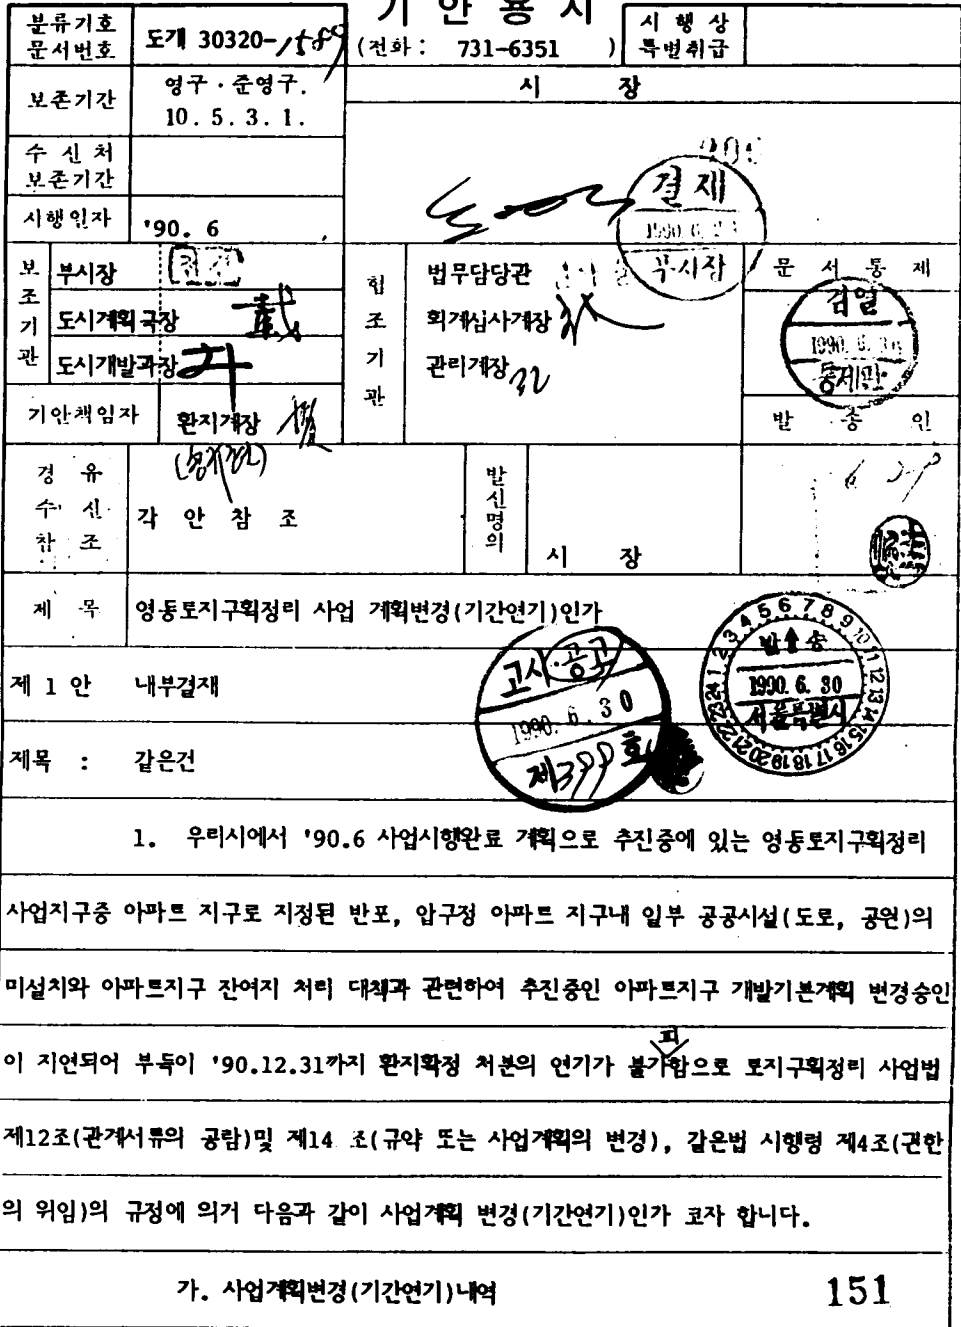 기 안 용 지
분류기호
문서번호
도개 30320-1589
(전화 : 731-6351 )
시 행 상
특별취급
보존기간
영구 · 준영구.
10. 5. 3. 1.
시 장
수 신 처
보존기간
시행일자
'90. 6 .
결 재
부시장
보조기관
부시장
도시계획국장
도시개발과장
협조기관
법무담당관
회계심사계장
관리계장
문 서 통 제
검열
1990. 6. 30
통제관
기안책임자
환지계장
발 송 인
경 유
수 신
참 조
각 안 참 조
발신명의
시 장
제 목
영동토지구획정리 사업 계획변경(기간연기)인가
고시·공고
1990. 6. 30
제399호
1 2 3 4 5 6 7 8 9 10 11 12 13 14 15 16 17 18 19 20 21 22 23 24
발송
1990. 6. 30
서울특별시
제 1 안 내부결재
제목 : 같은건
1. 우리시에서 '90.6 사업시행완료 계획으로 추진중에 있는 영동토지구획정리
사업지구중 아파트 지구로 지정된 반포, 압구정 아파트 지구내 일부 공공시설(도로, 공원)의
미설치와 아파트지구 잔여지 처리 대책과 관련하여 추진중인 아파트지구 개발기본계획 변경승인
이 지연되어 부득이 '90.12.31까지 환지확정 처분의 연기가 불가피함으로 토지구획정리 사업법
제12조(관계서류의 공람)및 제14 조(규약 또는 사업계획의 변경), 같은법 시행령 제4조(권한
의 위임)의 규정에 의거 다음과 같이 사업계획 변경(기간연기)인가 코자 합니다.
가. 사업계획변경(기간연기)내역
151